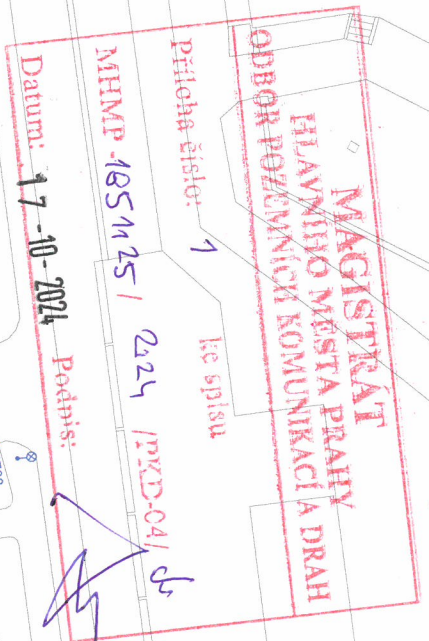 MAGISTRÁT
HLAVNÍHO MĚSTA PRAHY
ODBOR POZEMNÍCH KOMUNIKACÍ A DRAH
Příloha číslo: 1 ke spisu
MHMP - 1851125 / 2024 /PKD-O4/
Datum: 17 -10- 2024 Podpis: